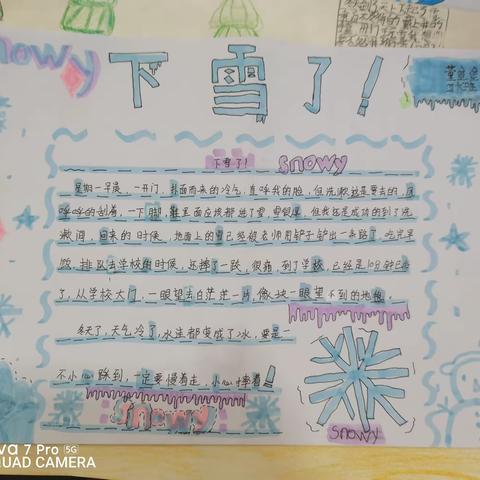 snowy
下雪了！
下雪了！ snowy
星期一早晨，一开门，扑面而来的冷气，直呼我的脸，但洗漱还是要去的，风
呼呼的刮着，一下脚，鞋里面应该都进了雪，但我还是成功的到了洗
漱间，回来的时候，地面上的雪已经被老师用铲子铲出一条路了，吃完早
饭，排队去学校的时候，还摔了一跤，很痛，到了学校，已经是
了，从学校大门，一眼望去白茫茫一片，像块一眼望不到的地毯，
冬天了，天气冷了，水洼都变成了冰，要是一
不小心踩到，一定要慢着走，小心摔着！
snowy
snowy
va 7 Pro 5G
QUAD CAMERA